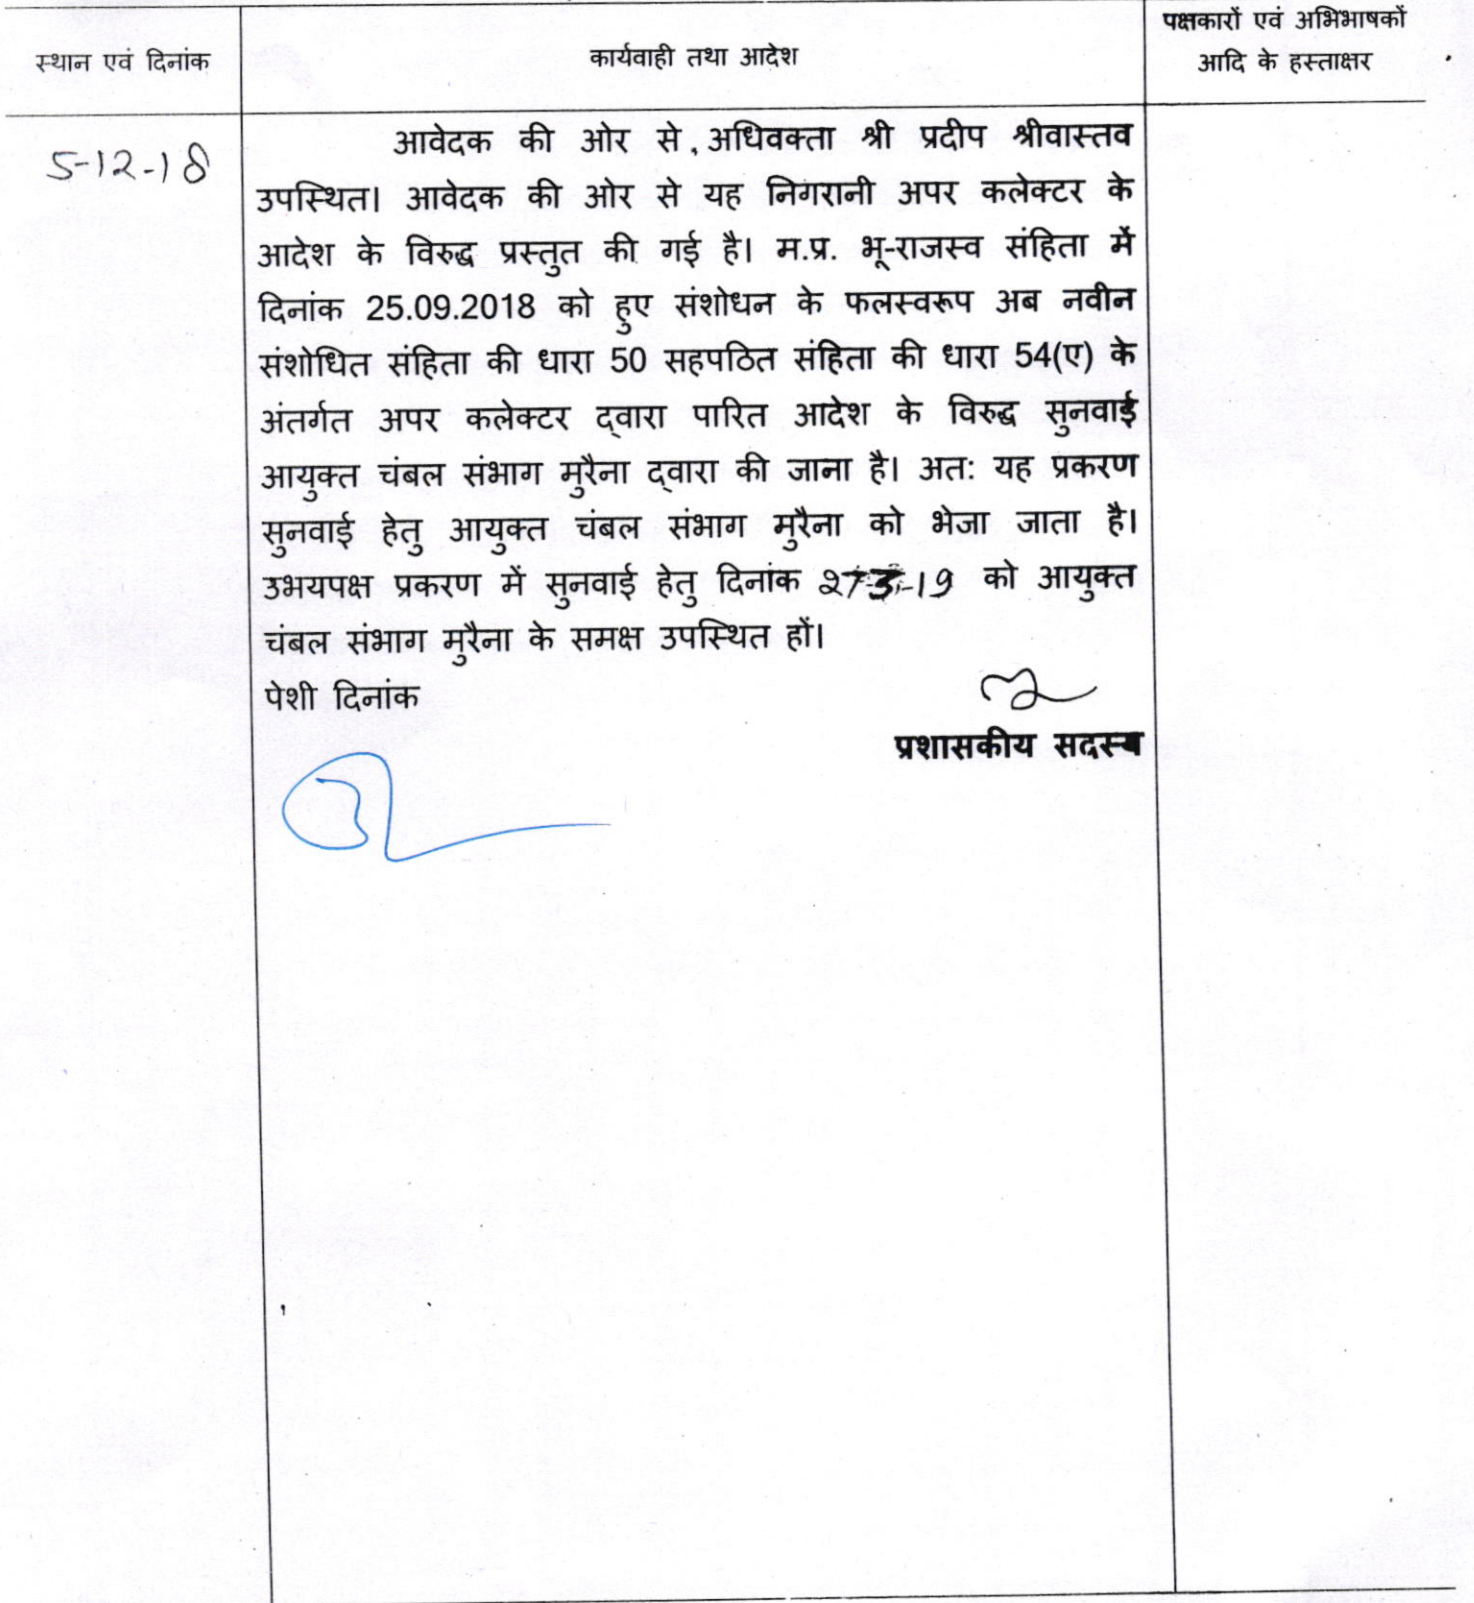 स्थान एवं दिनांक
कार्यवाही तथा आदेश
पक्षकारों एवं अभिभाषकों
आदि के हस्ताक्षर
5-12-18
आवेदक की ओर से, अधिवक्ता श्री प्रदीप श्रीवास्तव
उपस्थित। आवेदक की ओर से यह निगरानी अपर कलेक्टर के
आदेश के विरुद्ध प्रस्तुत की गई है। म.प्र. भू-राजस्व संहिता में
दिनांक 25.09.2018 को हुए संशोधन के फलस्वरूप अब नवीन
संशोधित संहिता की धारा 50 सहपठित संहिता की धारा 54(ए) के
अंतर्गत अपर कलेक्टर द्वारा पारित आदेश के विरुद्ध सुनवाई
आयुक्त चंबल संभाग मुरैना द्वारा की जाना है। अतः यह प्रकरण
सुनवाई हेतु आयुक्त चंबल संभाग मुरैना को भेजा जाता है।
उभयपक्ष प्रकरण में सुनवाई हेतु दिनांक 27-3-19 को आयुक्त
चंबल संभाग मुरैना के समक्ष उपस्थित हों।
पेशी दिनांक
प्रशासकीय सदस्य